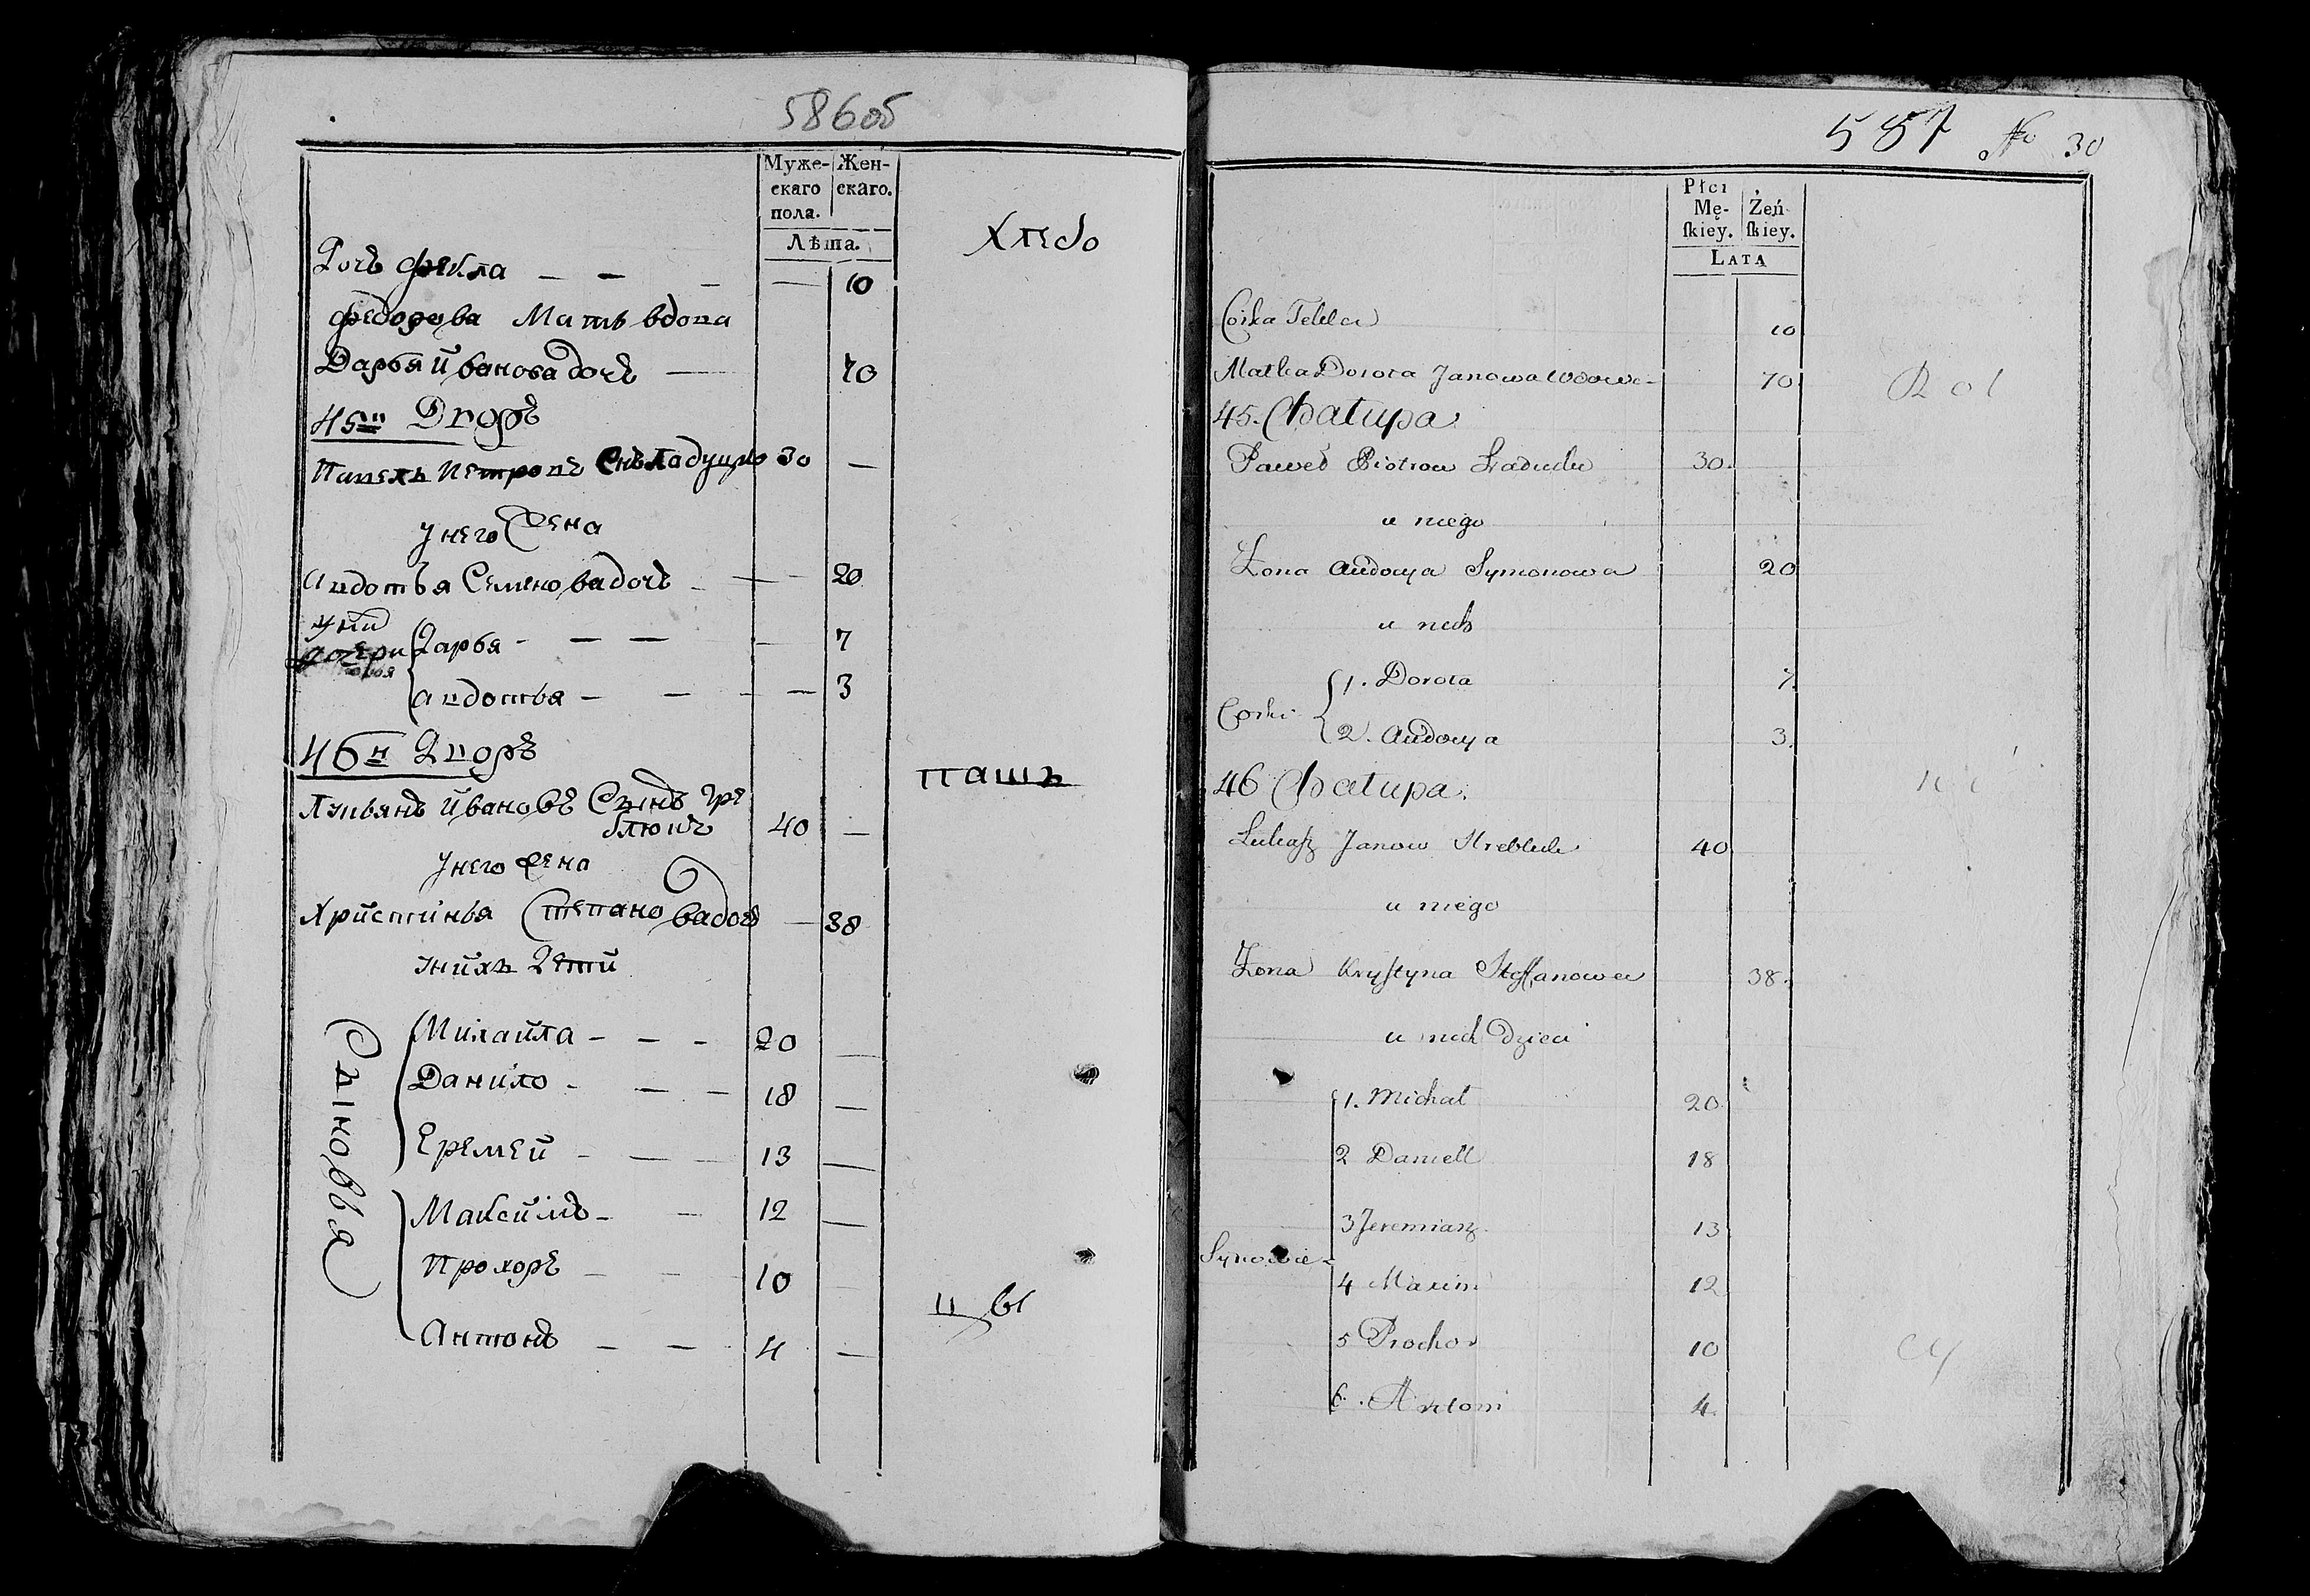 586об
Муже-
скаго
пола.
Жен-
скаго.
Лѣта.
Хлѣбо
Дочь Фекла — — — — 10
Федорова Мать вдова
Дарья Иванова дочь — 70
45й Дворъ
Павелъ Петровъ Снъ Ладущко 30 —
У него Жена
Авдотья Семенова дочь — — 20
У них
дочери
Дарья — — — — 7
Авдотья — — — — 3
46й Дворъ
пашъ
Лукьянъ Ивановъ Сынъ Гре
блюкъ 40 —
У него Жена
Христинья Степанова дочь — 38
У нихъ Дети
Сыновья
Михайла — — — 20 —
Данило — — — 18 —
Еремей — — — 13 —
Максимъ — — 12 —
Прохоръ — — 10 —
цы
Антонъ — — 4 —
587 No 30
Płci
Mę-
ſkiey.
Żeń
ſkiey.
Lata
Corka Tekla 10
Matka Dorota Janowa Wdowa 70
Rol
45. Chałupa
Paweł Piotrow Ładudu 30.
u niego
Żona Audocya Symonowa 20
u nich
Corki
1. Dorota 7.
2. Audocya 3.
46 Chałupa.
Łukaſz Janow Hrebluk 40
u niego
Żona Kryſtyna Steffanowa 38.
u nich Dzieci
Synowie
1. Michał 20
2 Daniell 18
3 Jeremiasz 13
4 Maxim 12
5 Prochor 10
cy
6. Antoni 4.